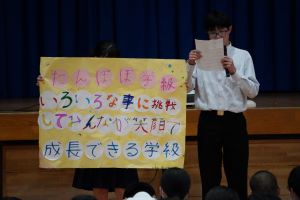 たんぽぽ学級
いろいろな事に挑戦
してみんなが笑顔で
成長できる学級